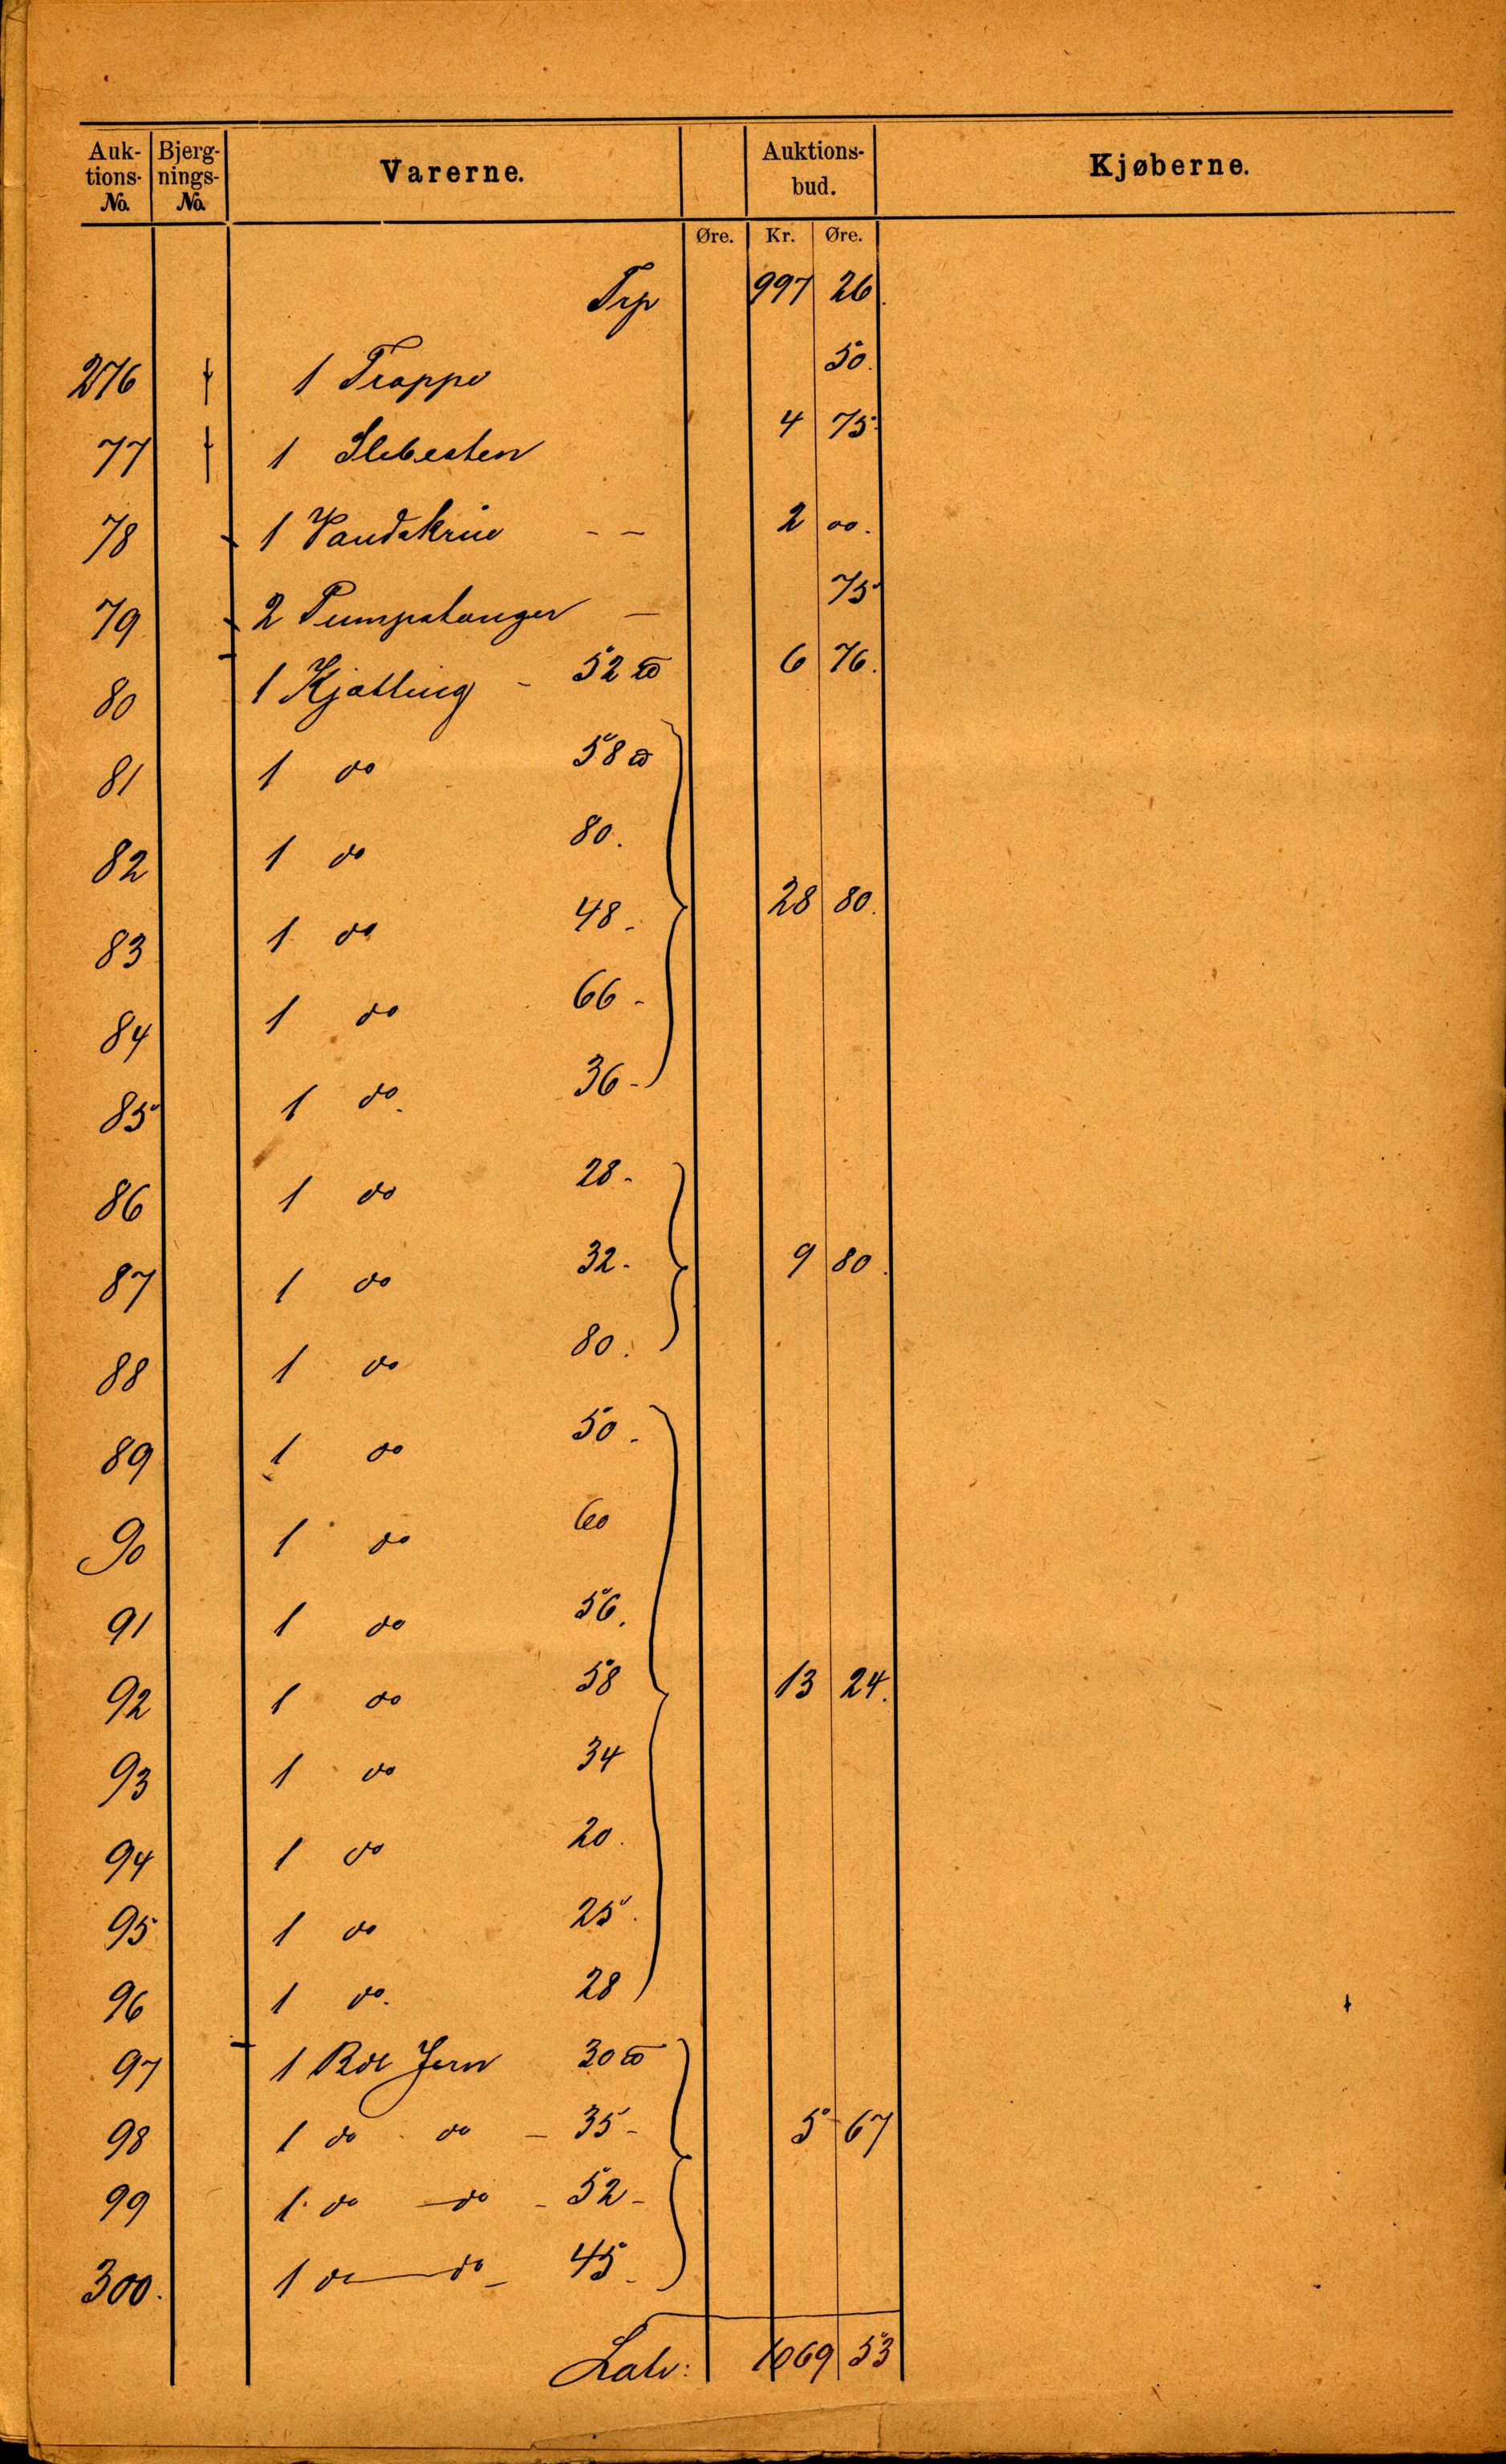 Auktions-No. Bjergnings-No. Varerne. Auktionsbud. Kjøberne.
Øre. Kr. Øre.
Trp 997 26.
276 1 Trappe 50.
77 1 Slibesten 4 75.
78 1 Vandskrin - - 2 00.
79 2 Pumpstanger — 75
80 1 Kjætting - 52 ℔ 6 76.
81 1 do 58 ℔
82 1 do 80.
83 1 do 48 - 28 80.
84 1 do 66 -
85 1 do. 36 -
86 1 do 28 -
87 1 do 32 - 9 80.
88 1 do 80.
89 1 do 50 -
90 1 do 60
91 1 do 56.
92 1 do 58 13 24.
93 1 do 34
94 1 do 20.
95 1 do 25.
96 1 do. 28
97 1 Bdt Jern 30 ℔
98 1 do - do - 35 - 5 67
99 1 do — do - 52 -
300. 1 do — do - 45 -
Latr: 1069 53